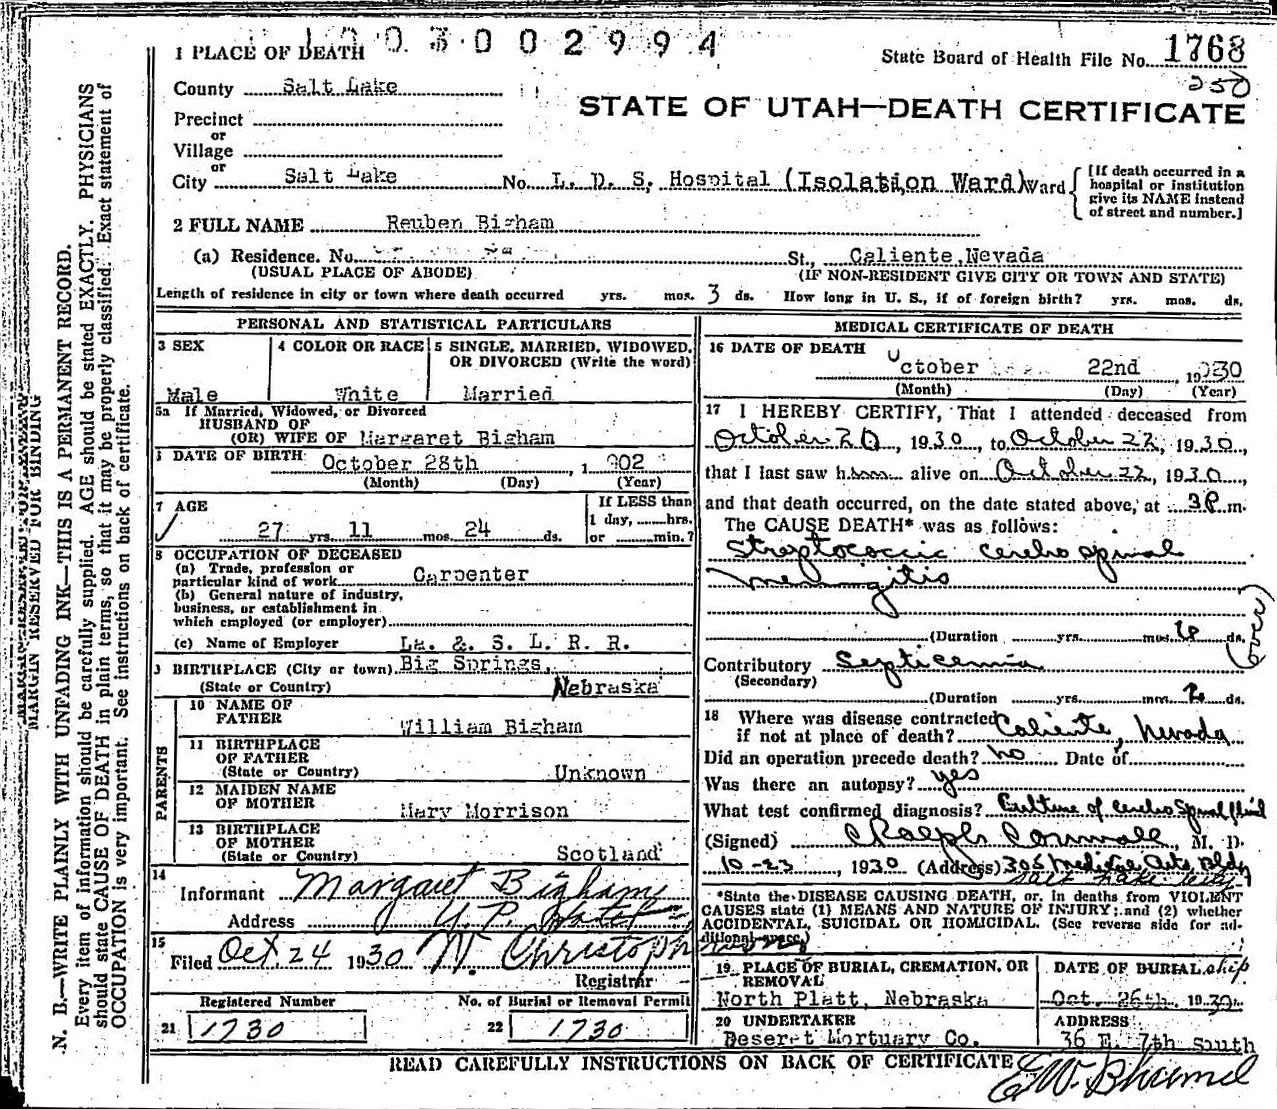 1003002994
1 PLACE OF DEATH
State Board of Health File No. 1768
250
County Salt Lake
STATE OF UTAH—DEATH CERTIFICATE
Precinct
or
Village
or
City Salt Lake No. L. D. S. Hospital (Isolation Ward) Ward
[If death occurred in a
hospital or institution
give its NAME instead
of street and number.]
2 FULL NAME Reuben Bigham
(a) Residence. No. St., Caliente, Nevada
(USUAL PLACE OF ABODE) (IF NON-RESIDENT GIVE CITY OR TOWN AND STATE)
Length of residence in city or town where death occurred yrs. mos. 3 ds. How long in U. S., if of foreign birth? yrs. mos. ds.
PERSONAL AND STATISTICAL PARTICULARS
3 SEX
Male
4 COLOR OR RACE
White
5 SINGLE, MARRIED, WIDOWED,
OR DIVORCED (Write the word)
Married
5a If Married, Widowed, or Divorced
HUSBAND OF
(OR) WIFE OF Margaret Bigham
DATE OF BIRTH October 28th, 1902
(Month) (Day) (Year)
7 AGE
27 yrs. 11 mos. 24 ds.
If LESS than
1 day, hrs.
or min.?
8 OCCUPATION OF DECEASED
(a) Trade, profession or
particular kind of work Carpenter
(b) General nature of industry,
business, or establishment in
which employed (or employer)
(c) Name of Employer La. & S. L. R. R.
BIRTHPLACE (City or town) Big Springs,
(State or Country) Nebraska
PARENTS
10 NAME OF
FATHER William Bigham
11 BIRTHPLACE
OF FATHER
(State or Country) Unknown
12 MAIDEN NAME
OF MOTHER Mary Morrison
13 BIRTHPLACE
OF MOTHER
(State or Country) Scotland
14
Informant Margaret Bigham
Address U. P. Hotel
15
Filed Oct. 24 1930 W. Christoph
Registrar
Registered Number No. of Burial or Removal Permit
21 1730 22 1730
MEDICAL CERTIFICATE OF DEATH
16 DATE OF DEATH
October 22nd, 1930
(Month) (Day) (Year)
17 I HEREBY CERTIFY, That I attended deceased from
October 20, 1930, to October 22, 1930,
that I last saw him alive on October 22, 1930,
and that death occurred, on the date stated above, at 3P m.
The CAUSE DEATH* was as follows:
Streptococcic cerebrospinal
meningitis
(over)
(Duration yrs. mos. ds.
Contributory Septicemia
(Secondary)
(Duration yrs. mos. ds.
18 Where was disease contracted
if not at place of death? Caliente, Nevada
Did an operation precede death? no Date of
Was there an autopsy? yes
What test confirmed diagnosis? Culture of cerebro Spinal fluid
(Signed) Ralph Cornwall, M. D.
10-23, 1930 (Address) 305 Medical Arts Bldg
Salt Lake City
*State the DISEASE CAUSING DEATH, or, in deaths from VIOLENT
CAUSES state (1) MEANS AND NATURE OF INJURY; and (2) whether
ACCIDENTAL, SUICIDAL OR HOMICIDAL. (See reverse side for ad-
ditional space.)
19 PLACE OF BURIAL, CREMATION, OR
REMOVAL
North Platt, Nebraska
DATE OF BURIAL ship
Oct. 26th 1930
20 UNDERTAKER
Deseret Mortuary Co.
ADDRESS
36 E. 7th South
READ CAREFULLY INSTRUCTIONS ON BACK OF CERTIFICATE
MARGIN RESERVED FOR BINDING
N. B.—WRITE PLAINLY WITH UNFADING INK—THIS IS A PERMANENT RECORD.
Every item of information should be carefully supplied. AGE should be stated EXACTLY. PHYSICIANS
should state CAUSE OF DEATH in plain terms, so that it may be properly classified. Exact statement of
OCCUPATION is very important. See instructions on back of certificate.